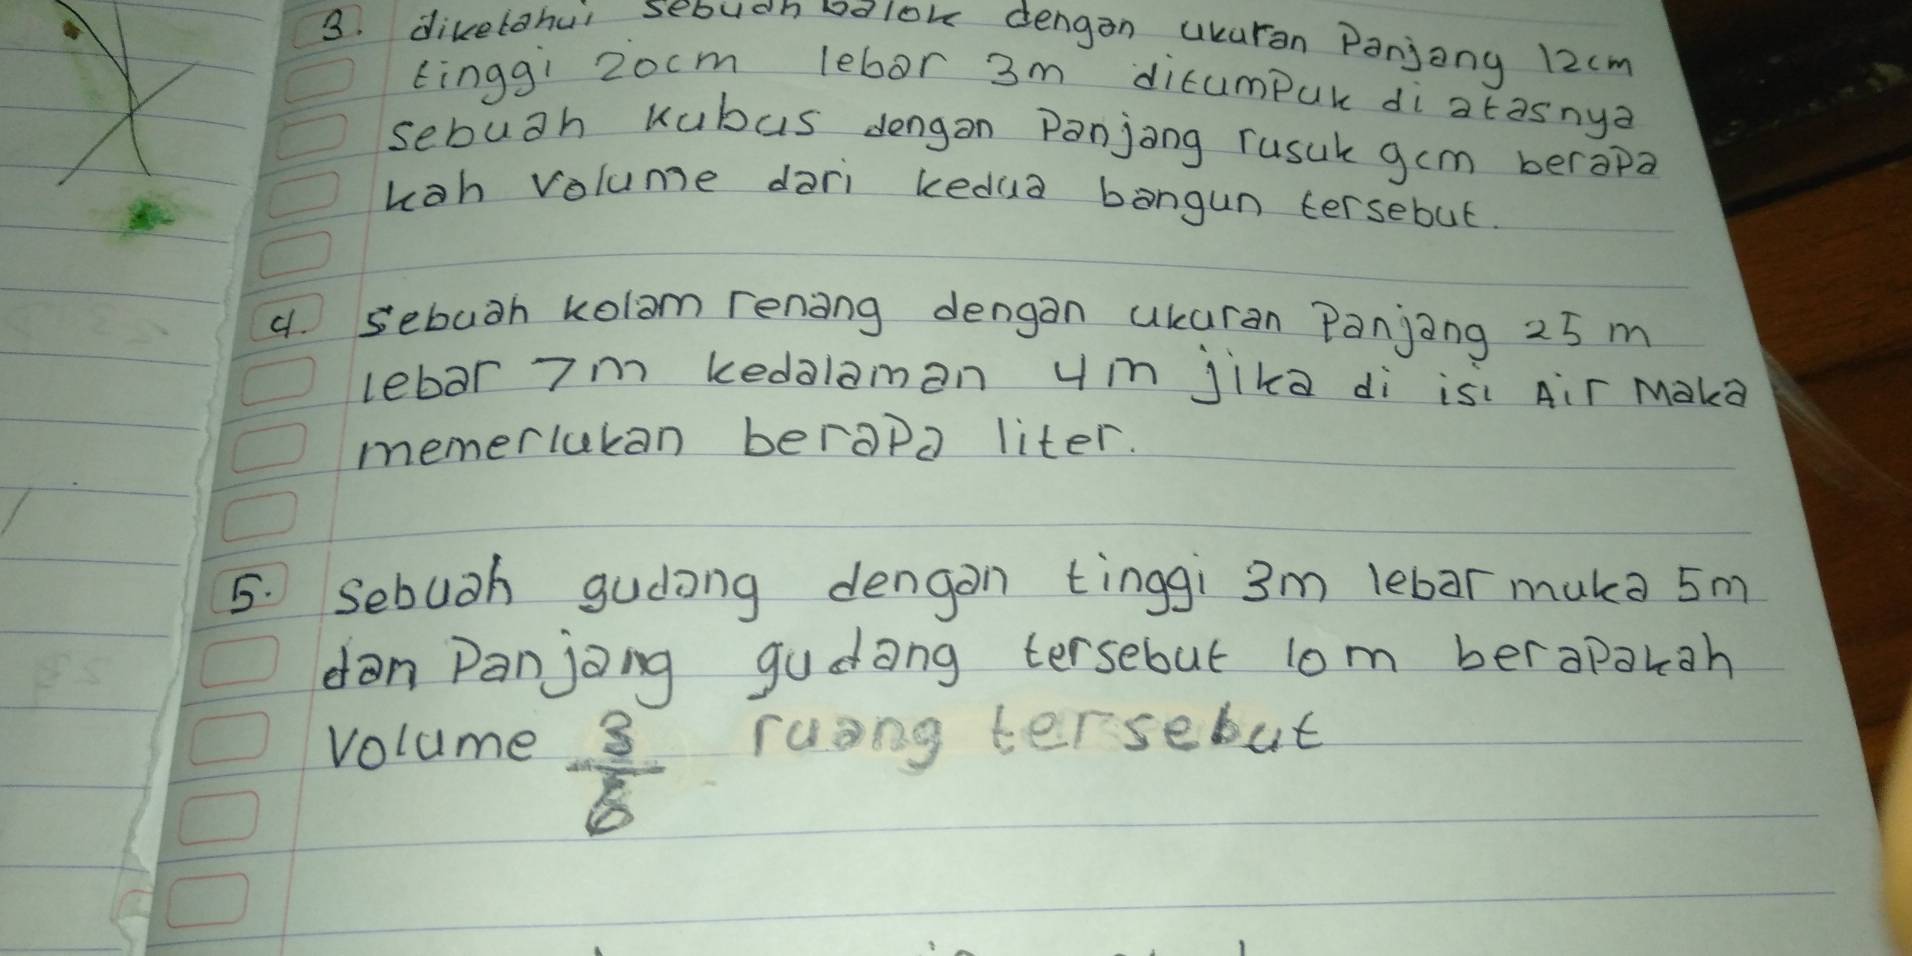 3. diketahui sebuah balok dengan ukuran Panjang 12cm
tinggi 20cm lebar 3m ditumpuk di atasnya
sebuah kubus dengan Panjang rusuk 9cm berapa
kah volume dari kedua bangun tersebut.
4. sebuah kolam renang dengan ukuran Panjang 25 m
lebar 7m kedalaman 4m jika di isi Air Maka
memerlukan berapa liter.
5. sebuah gudang dengan tinggi 3m lebar muka 5m
dan Panjang gudang tersebut 10m berapakah
volume 3/6 ruang tersebut